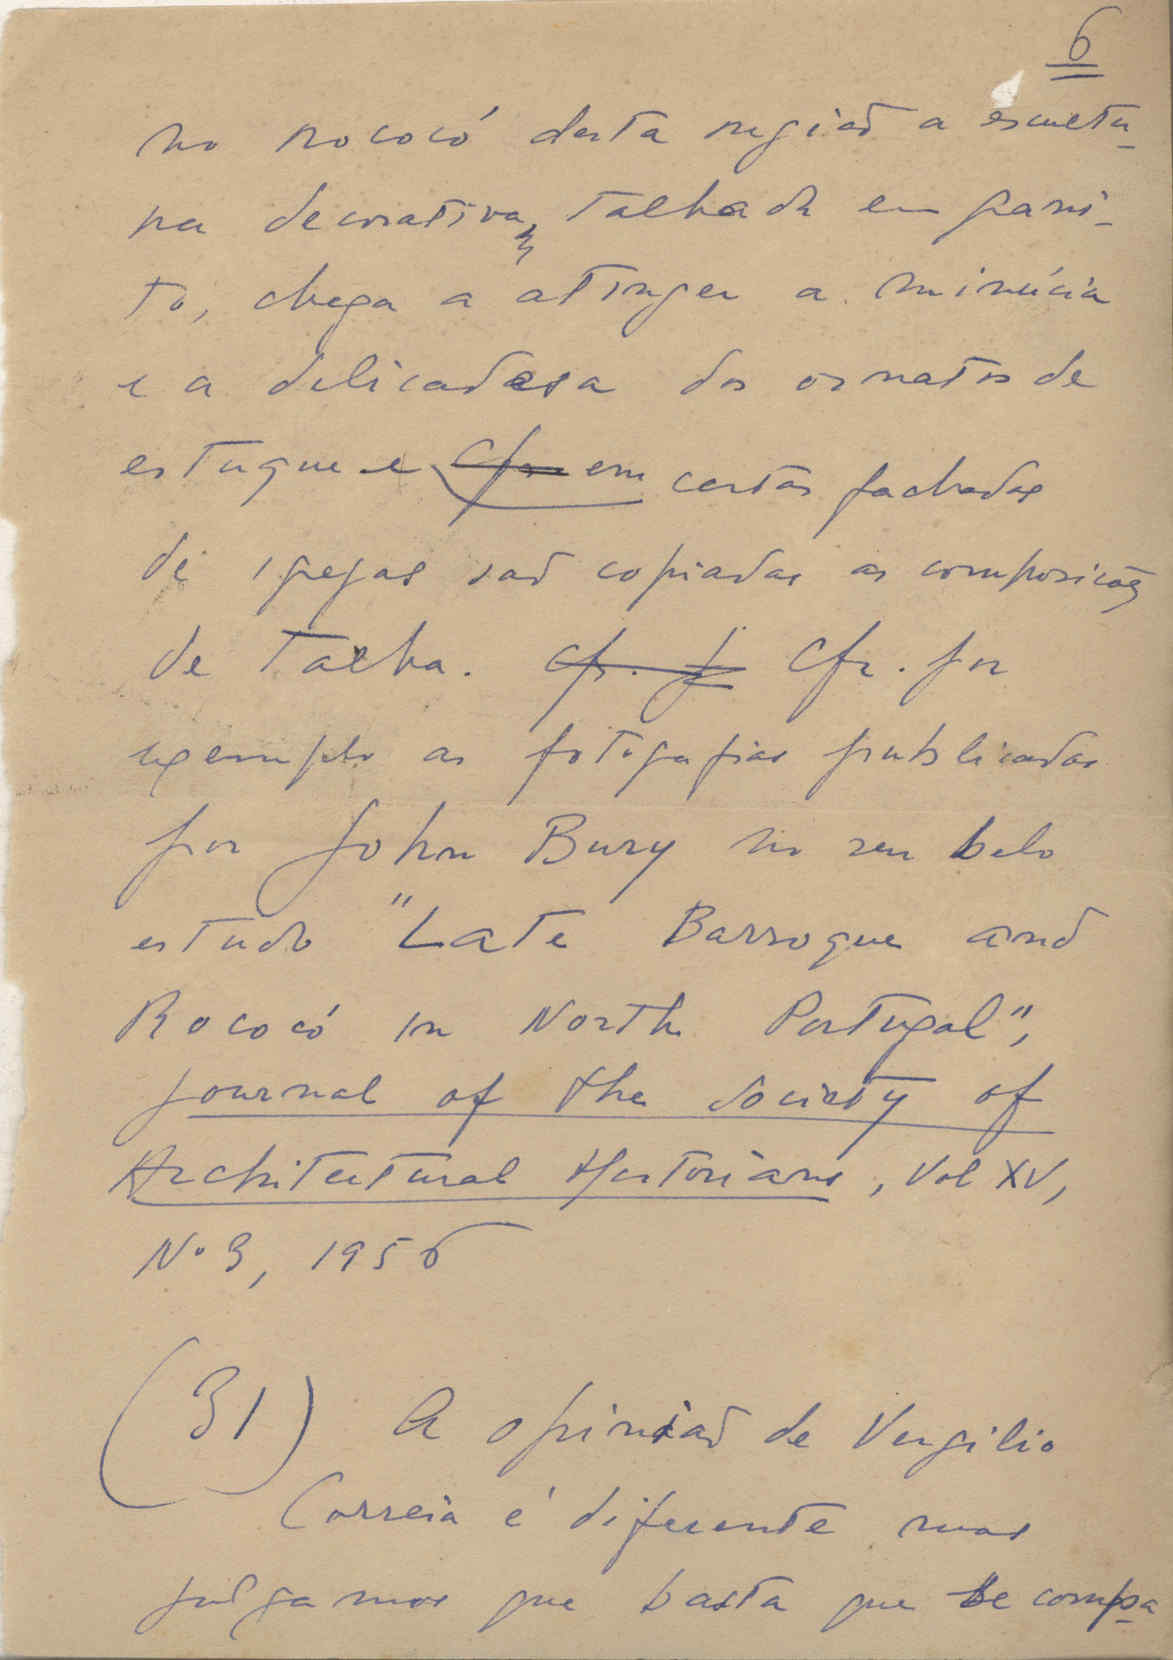 6
no rococó desta região a escultu-
ra decorativa, talhada em grani-
to, chega a atinger a minúcia
e a delicadesa dos ornatos de
estuque e Cfr em certas fachadas
de igrejas são copiadas as composições
de talha. Cfr. j Cfr. por
exemplo as fotografias publicadas
por John Bury no seu belo
estudo "Late Barroque and
Rococó in North Portugal",
Journal of the Society of
Architectural Historians, Vol XV,
Nº 3, 1956
(31) A opinião de Vergilio
Correia é diferente mas
julgamos que basta que se compa